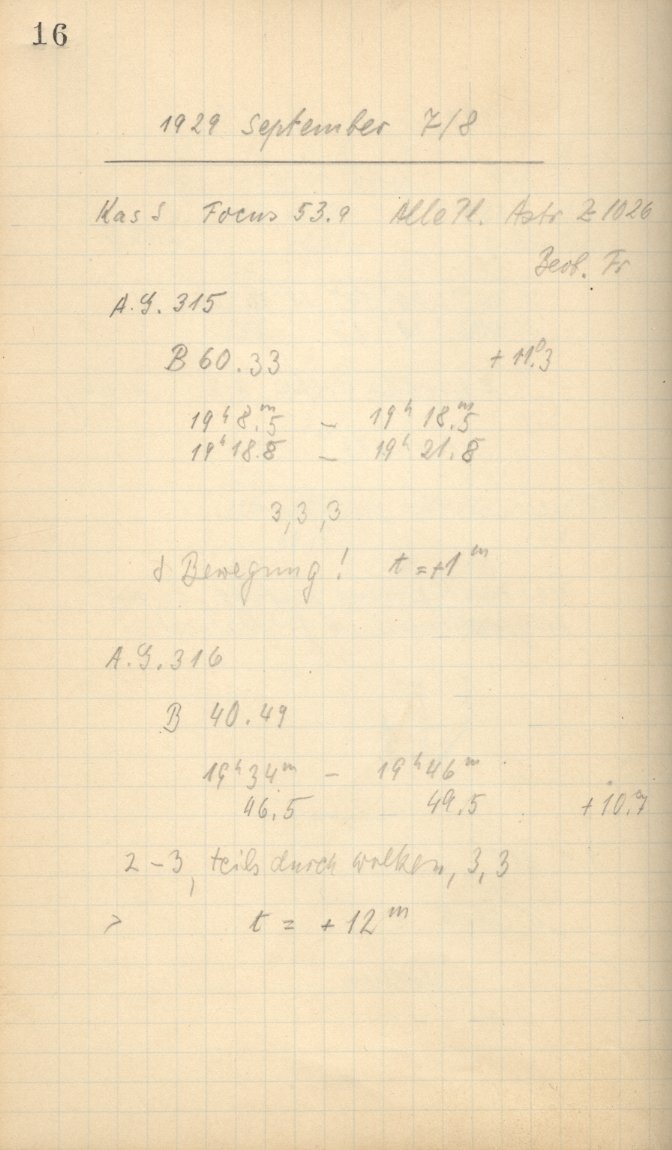 16
1929 September 7/8
Kas δ Focus 53.9 Alle Pl. Astr Z 1026
Beob. Fr
A.G. 315
B 60.33 +11°.3
19ʰ8.ᵐ5 – 19ʰ18.ᵐ5
19ʰ18.8 – 19ʰ21.8
3,3,3
δ Bewegung! t=+1ᵐ
A.G. 316
B 40.49
19ʰ34ᵐ – 19ʰ46ᵐ
46.5 49.5 +10.°7
2–3, teils durch Wolken, 3,3
> t = +12ᵐ